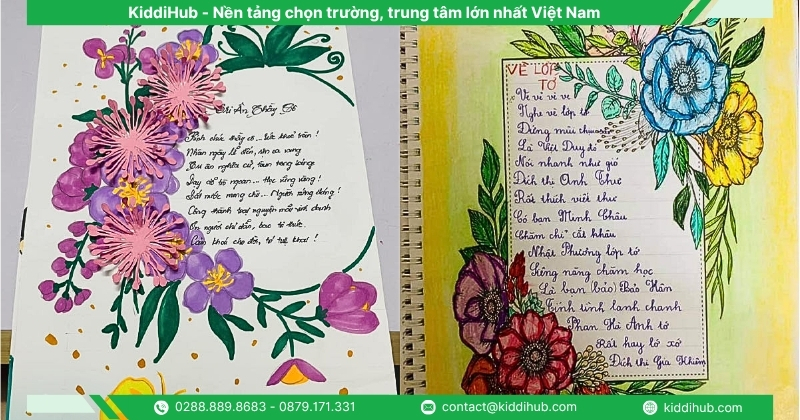 KiddiHub - Nền tảng chọn trường, trung tâm lớn nhất Việt Nam
Tri Ân Thầy Cô
Kính chúc thầy cô ... sức khoẻ tràn !
Nhân ngày lễ đến, xin ca vang
nghĩa cử, trong
Dạy dỗ trò ngoan ... học vững vàng !
Đất nước mong chờ ... Người xứng đáng !
Công thành toại nguyện mãi vinh danh
Ơn người chỉ dẫn, bao tri thức
cho đời, trí tuệ khai !
VÈ LỚP
TỚ
Ve vẻ vè ve
Nghe vè lớp tớ
Đứng mũi
Là Việt Duy đó
Nói nhanh như gió
Đích thị Anh Thư
Rất thích viết thư
Có bạn Minh Châu
Chăm chỉ cắt khâu
Nhật Phương lớp tớ
Siêng năng chăm học
Là bạn (bảo) Bảo Hân
Tính tình lanh chanh
Phan Hà Anh tớ
Rất hay lớ xớ
Đích thị Gia Khiêm
0288.889.8683 - 0879.171.331
contact@kiddihub.com
kiddihub.com